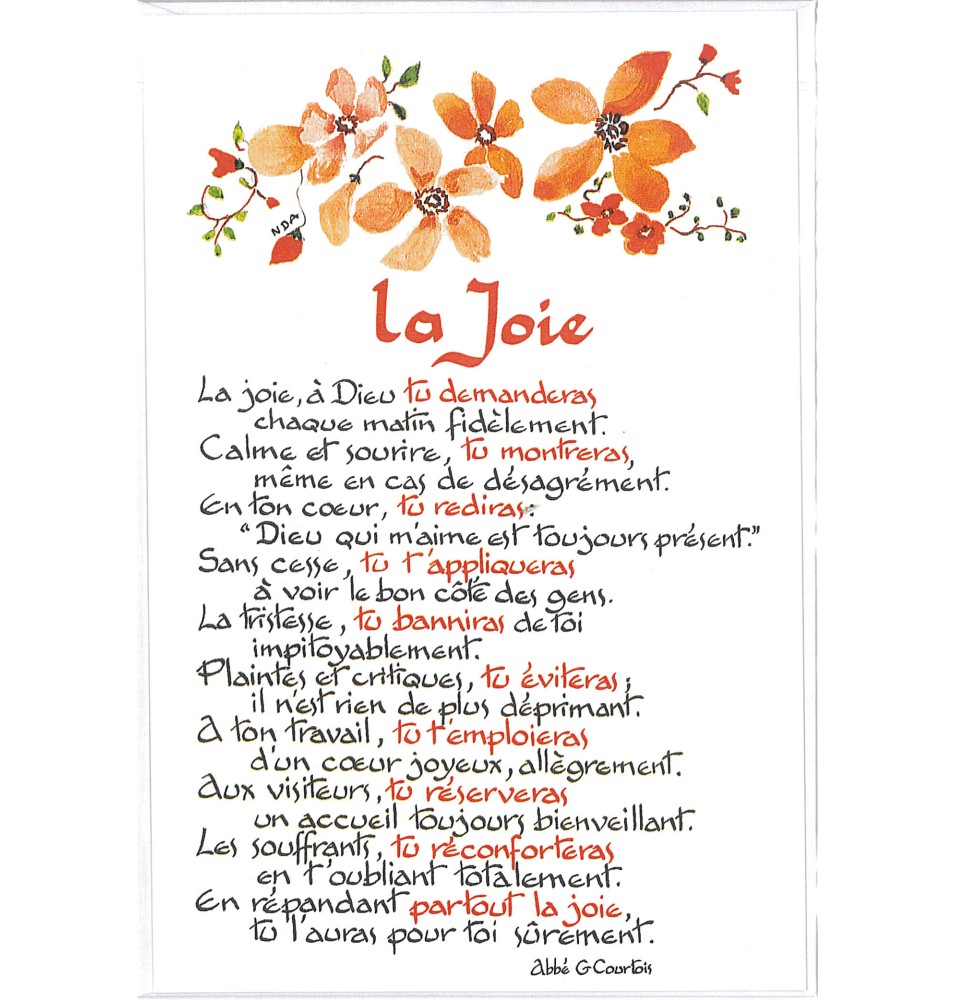 NDA
la Joie
La joie, à Dieu tu demanderas
chaque matin fidèlement.
Calme et sourire, tu montreras,
même en cas de désagrément.
En ton coeur, tu rediras:
"Dieu qui m'aime est toujours présent."
Sans cesse, tu t'appliqueras
à voir le bon côté des gens.
La tristesse, tu banniras de toi
impitoyablement.
Plaintes et critiques, tu éviteras;
il n'est rien de plus déprimant.
A ton travail, tu t'emploieras
d'un cœur joyeux, allègrement.
Aux visiteurs, tu réserveras
un accueil toujours bienveillant.
Les souffrants, tu réconforteras
en t'oubliant totalement.
En répandant partout la joie,
tu l'auras pour toi sûrement.
Abbé G Courtois